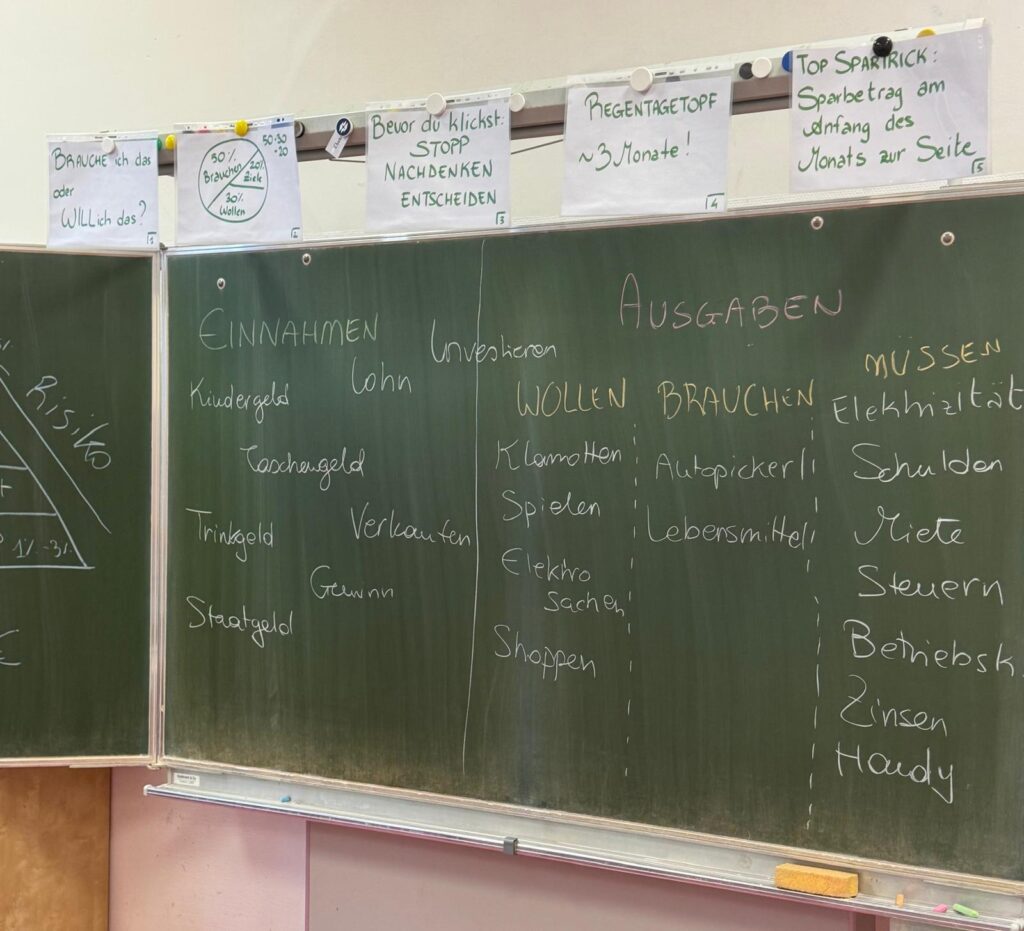 BRAUCHE ich das
oder
WILL ich das?
1
50%
Brauchen
20%
Ziele
30%
Wollen
50-30
-20
2
Bevor du klickst:
STOPP
NACHDENKEN
ENTSCHEIDEN
3
REGENTAGETOPF
~3 Monate!
4
TOP SPARTRICK:
Sparbetrag am
Anfang des
Monats zur Seite
5
Risiko
1% -3%
€
EINNAHMEN
Investieren
Lohn
Kindergeld
Taschengeld
Trinkgeld
Verkaufen
Gewinn
Staatgeld
AUSGABEN
WOLLEN
Klamotten
Spielen
Elektro
Sachen
Shoppen
BRAUCHEN
Autopickerl
Lebensmittel
MÜSSEN
Elektrizität
Schulden
Miete
Steuern
Betriebsk.
Zinsen
Handy